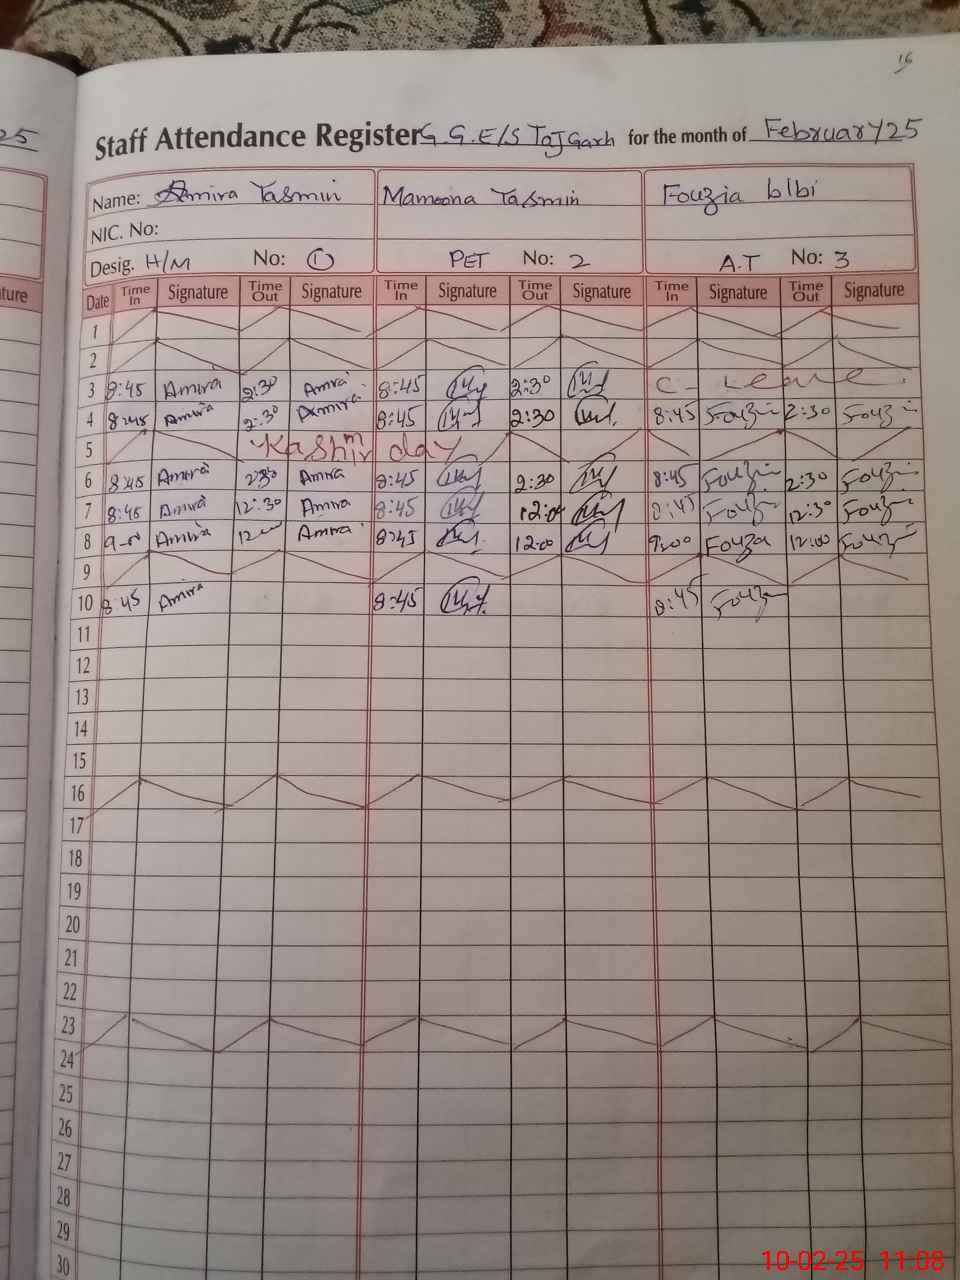 16
25
Staff Attendance Register G.G.E/S TajGarh for the month of February 25
Name: Amira Yasmin Mamoona Yasmin Fouzia bIbi
NIC. No:
Desig. H/M No: 1 PET No: 2 A.T No: 3
ture
Date Time In Signature Time Out Signature Time In Signature Time Out Signature Time In Signature Time Out Signature
1
2
3 8:45 Amira 2:30 Amra 8:45 2:30 C- Leave.
4 8:45 Amira 2:30 Amira 8:45 2:30 8:45 Fouzia 2:30 Fouzia
5 Kashmir day
6 8:45 Amira 2:30 Amra 8:45 2:30 8:45 Fouzia 2:30 Fouzia
7 8:45 Amira 12:30 Amra 8:45 8:45 Fouzia 12:30 Fouzia
8 9-00 Amira 12 Amra 8:45 12:00 9:00 Fouza 12:00 Fouzia
9
10 8:45 Amira 8:45 8:45 Fouzia
11
12
13
14
15
16
17
18
19
20
21
22
23
24
25
26
27
28
29
30
10-02-25 11:08